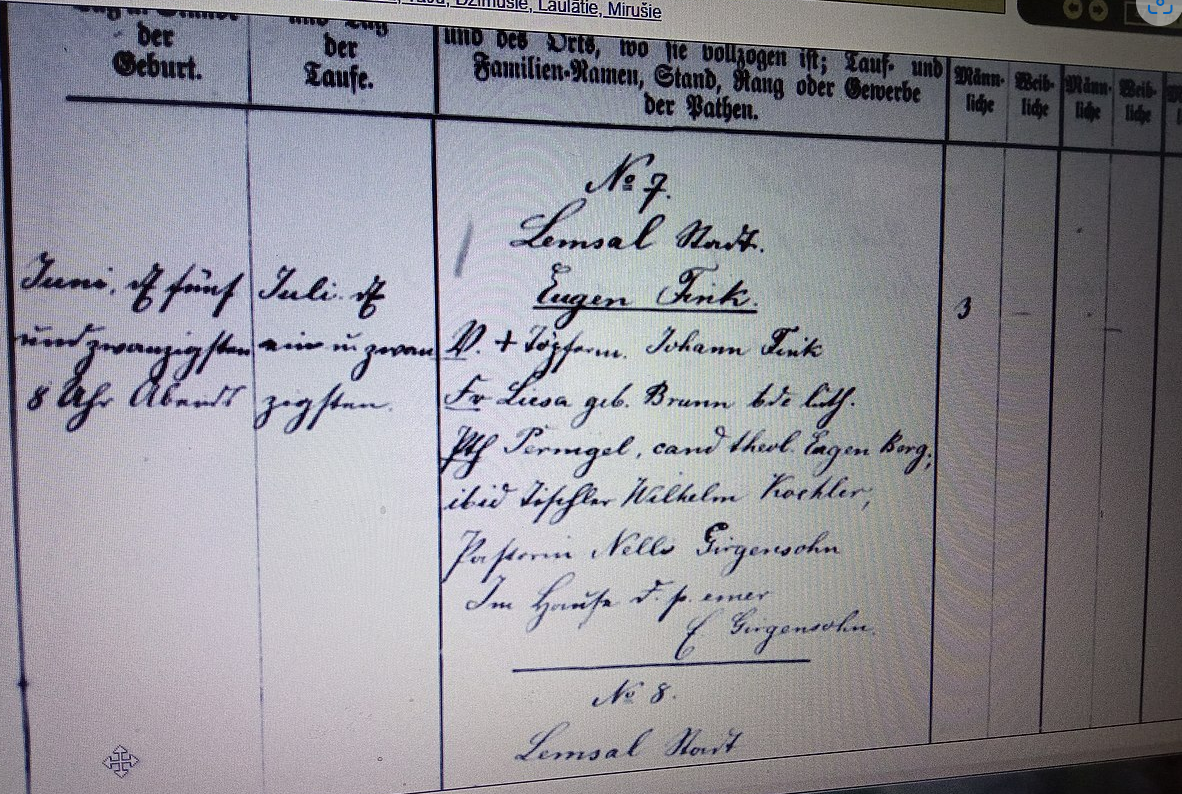 Dzimušie, Laulātie, Mirušie
der
Geburt.
der
Taufe.
und des Orts, wo sie vollzogen ist; Tauf- und
Familien-Namen, Stand, Rang oder Gewerbe
der Pathen.
Männ-
liche
Weib-
liche
Männ-
liche
Weib-
liche
Juni, d fünf
und zwanzigsten
8 Uhr Abends
Juli. d
ein u zwan
zigsten.
No 7.
Lemsal Stadt.
Eugen Fink.
V. + Töpferm. Johann Fink
Fr Liesa geb. Brunn bde luth.
Pth Pernigel, cand theol. Eugen Berg,
ibid Tischler Wilhelm Koehler,
Pastorin Nelly Girgensohn
Im Hause d. p. emer
Girgensohn.
3
No 8.
Lemsal Stadt